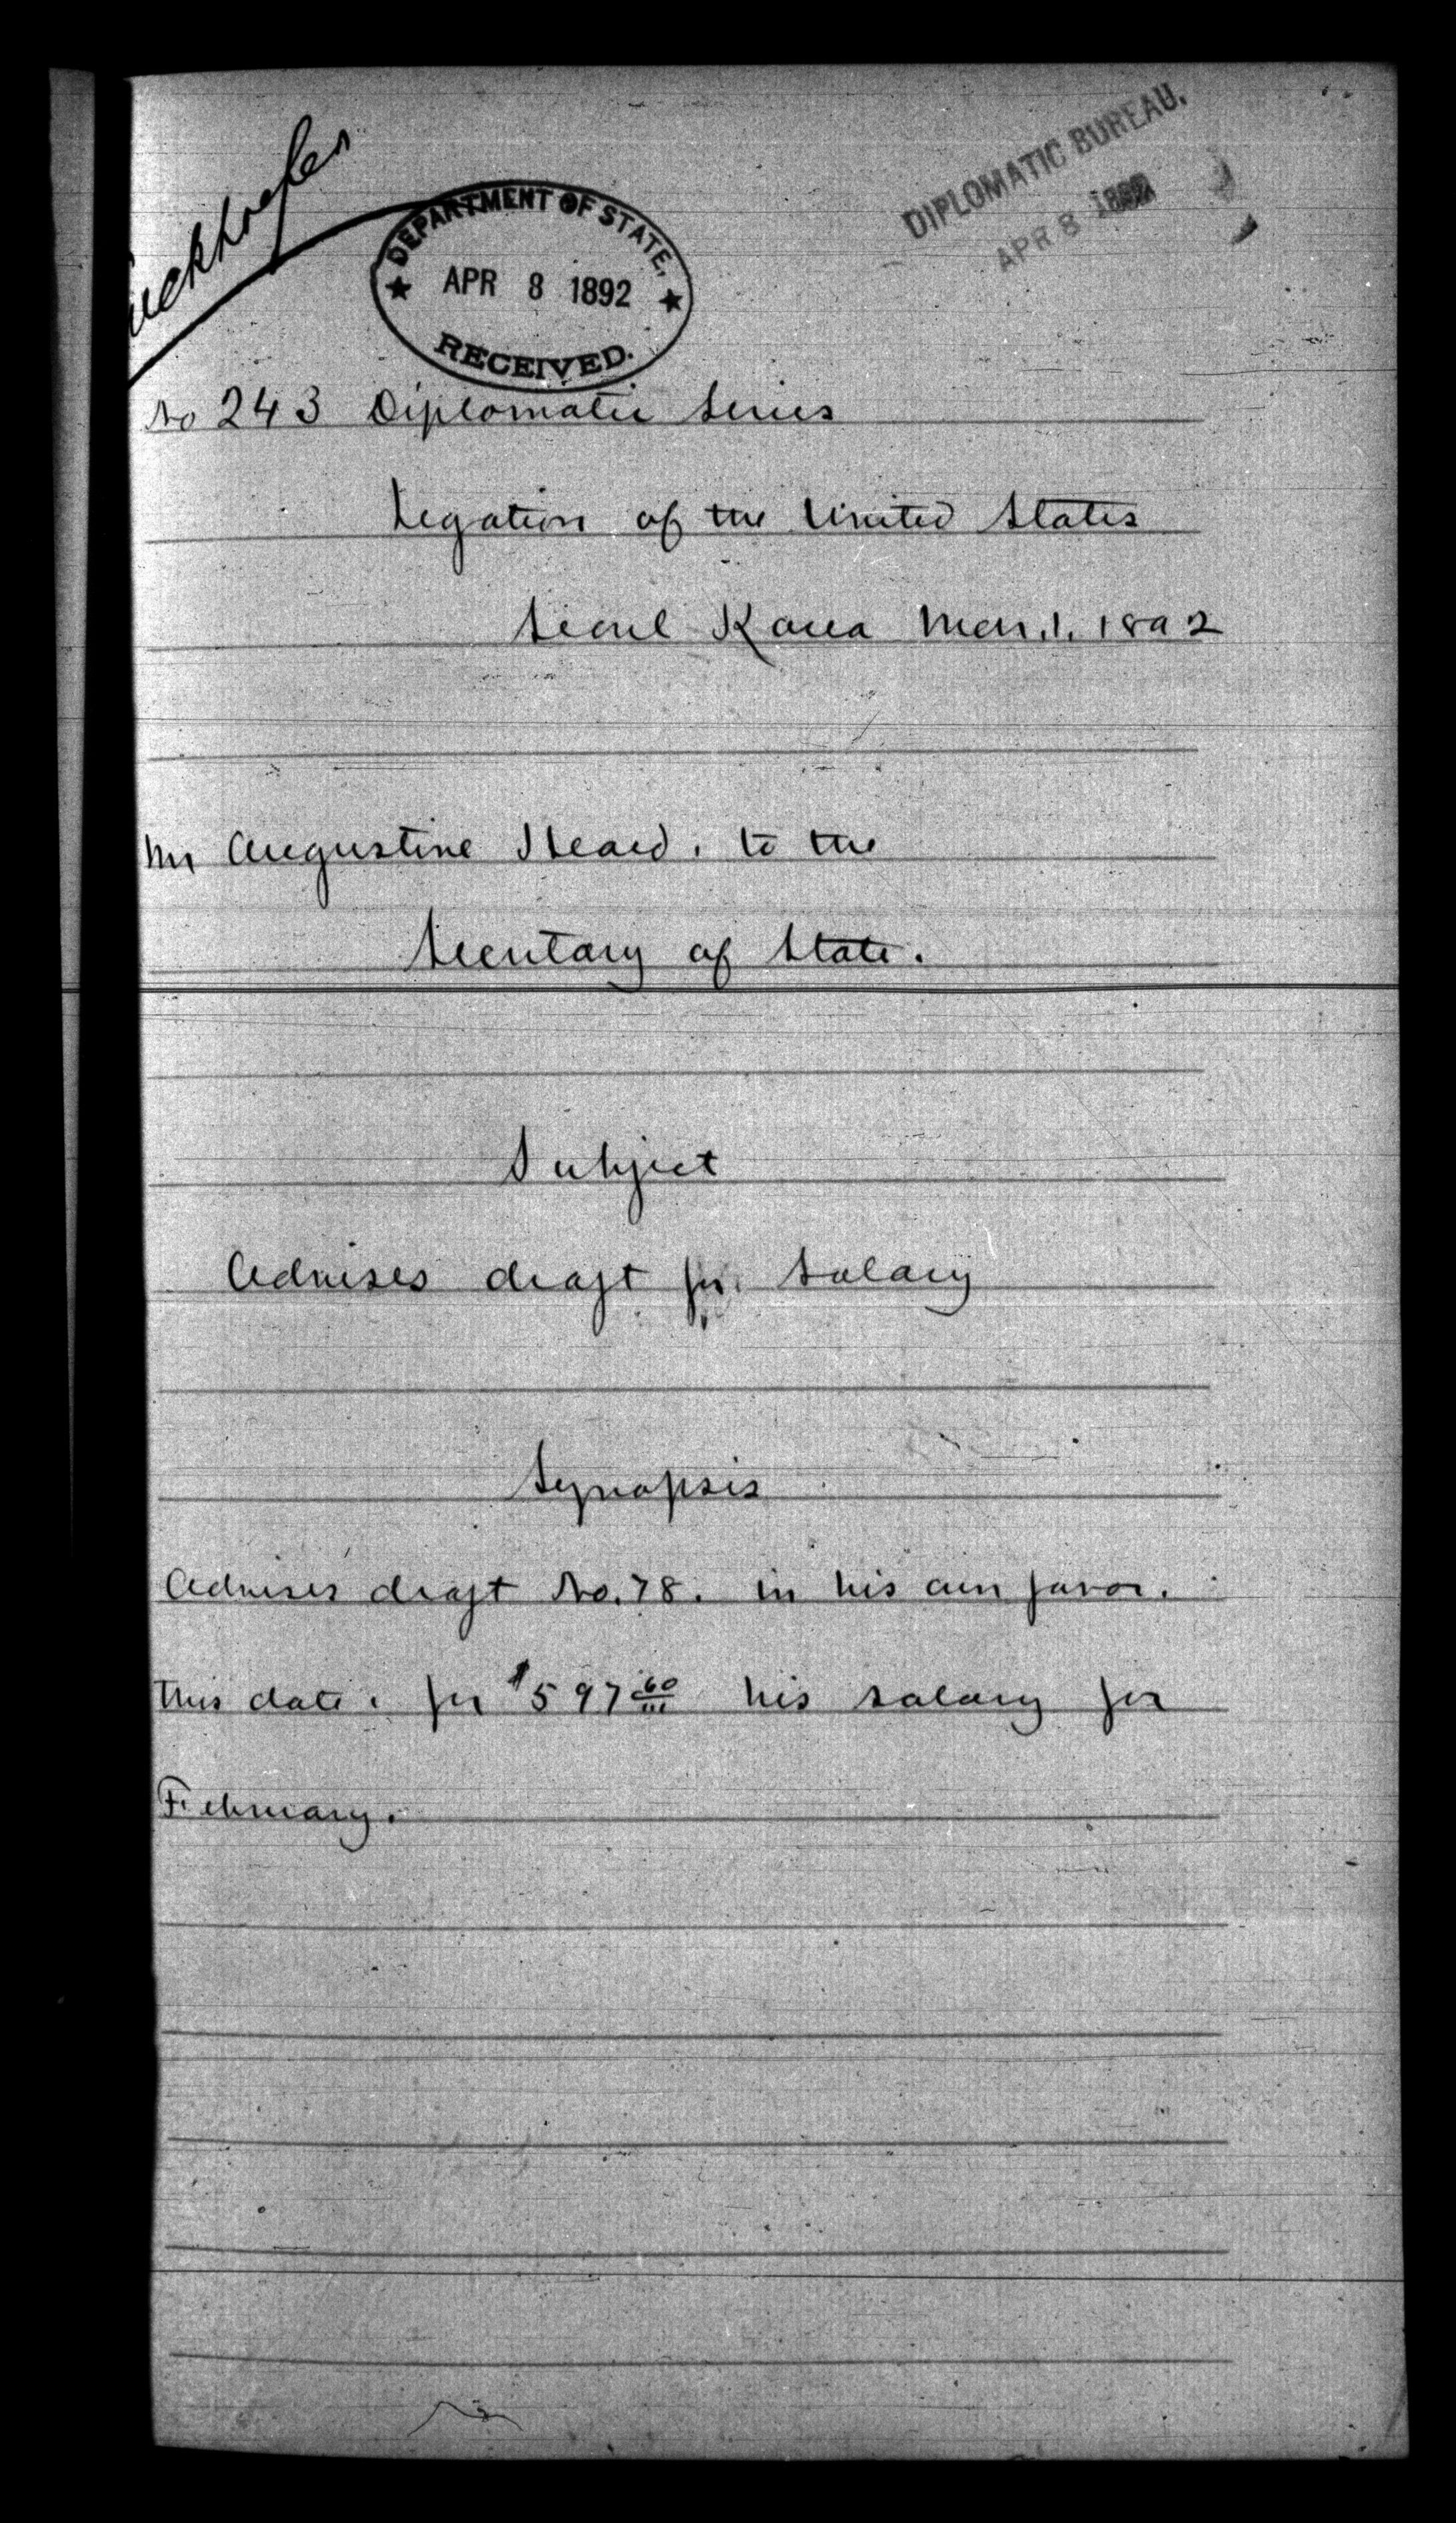 DIPLOMATIC BUREAU.
APR 8 1892
DEPARTMENT OF STATE,
APR 8 1892
RECEIVED.
No 243 Diplomatic Series
Legation of the United States
Seoul Korea Mar. 1. 1892
Mr Augustine Heard. to the
Secretary of State.
Subject
Advises draft for salary
Synopsis
Advises draft No. 78. in his own favor.
this date. for $597 60/100 his salary for
February.